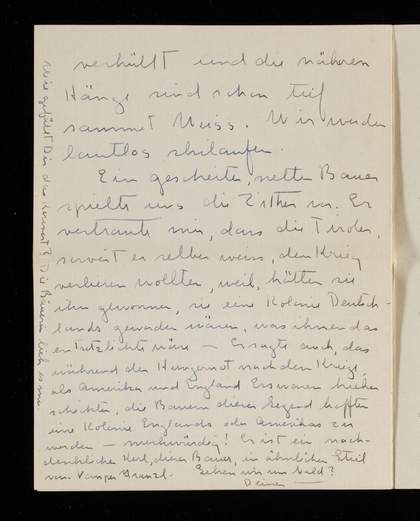 verhüllt und die näheren
Hänge sind schon tief
sammet Weiss. Wir werden
lautlos skilaufen.
Ein gescheiter, netter Bauer
spielte uns die Zither vor. Er
vertraute mir, dass die Tiroler,
soweit es selber weiss, den Krieg
verlieren wollten, weil, hätten sie
ihn gewonnen, sie eine Kolonie Deutsch-
lands geworden wären, was ihnen das
entsetzlichste wäre — Er sagte auch, das
während der Hungersnot nach dem Kriege,
als Amerika und England Esswaren hieher
schickten, die Bauern dieser Gegend hofften
eine Kolonie Englands oder Amerikas zu
werden — merkwürdig! Er ist ein nach-
denklicher Kerl, dieser Bauer, in ähnlichen Stil
vom Sehen wir uns bald?
Deinen
Wie gefällt Dir das Couvert? Die Bäuerin lieh es mir